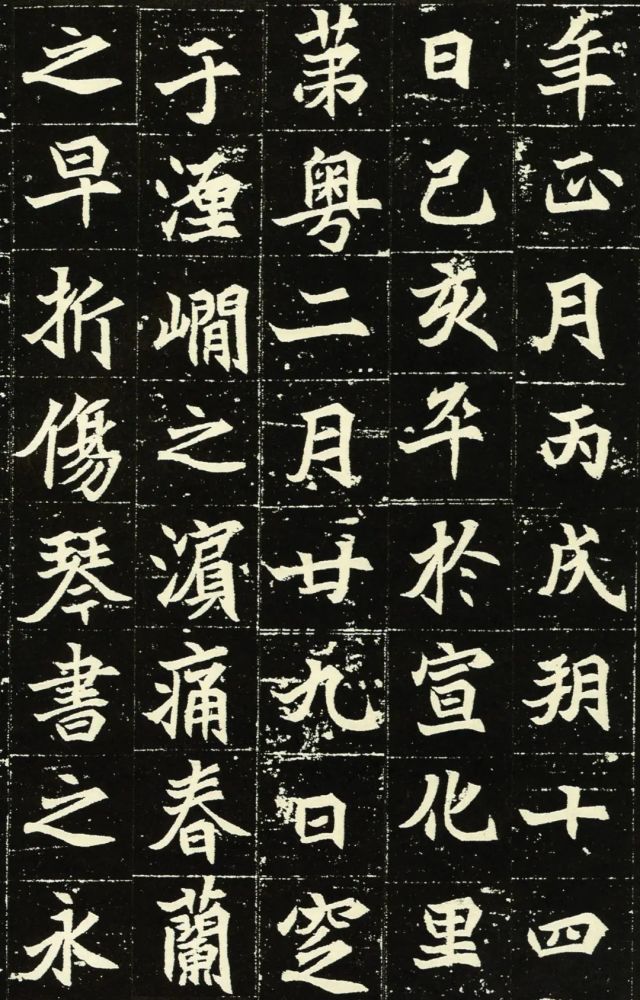 年正月丙戌朔十四
日己亥卒於宣化里
第粤二月廿九日窆
于湹㵎之濵痛春蘭
之早折傷琴書之永